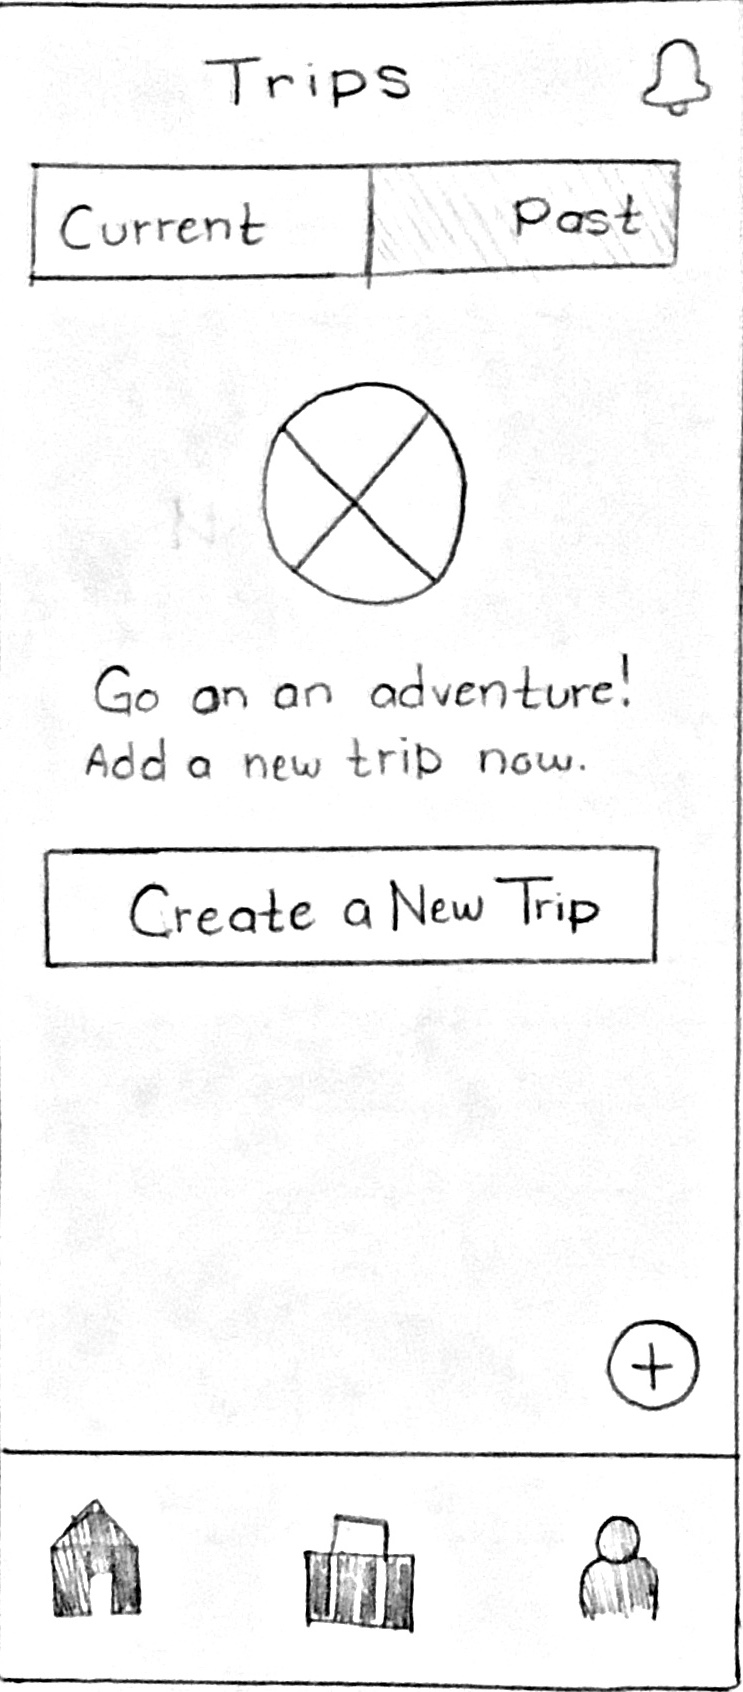 Trips
Current Past
Go on an adventure!
Add a new trip now.
Create a New Trip
+